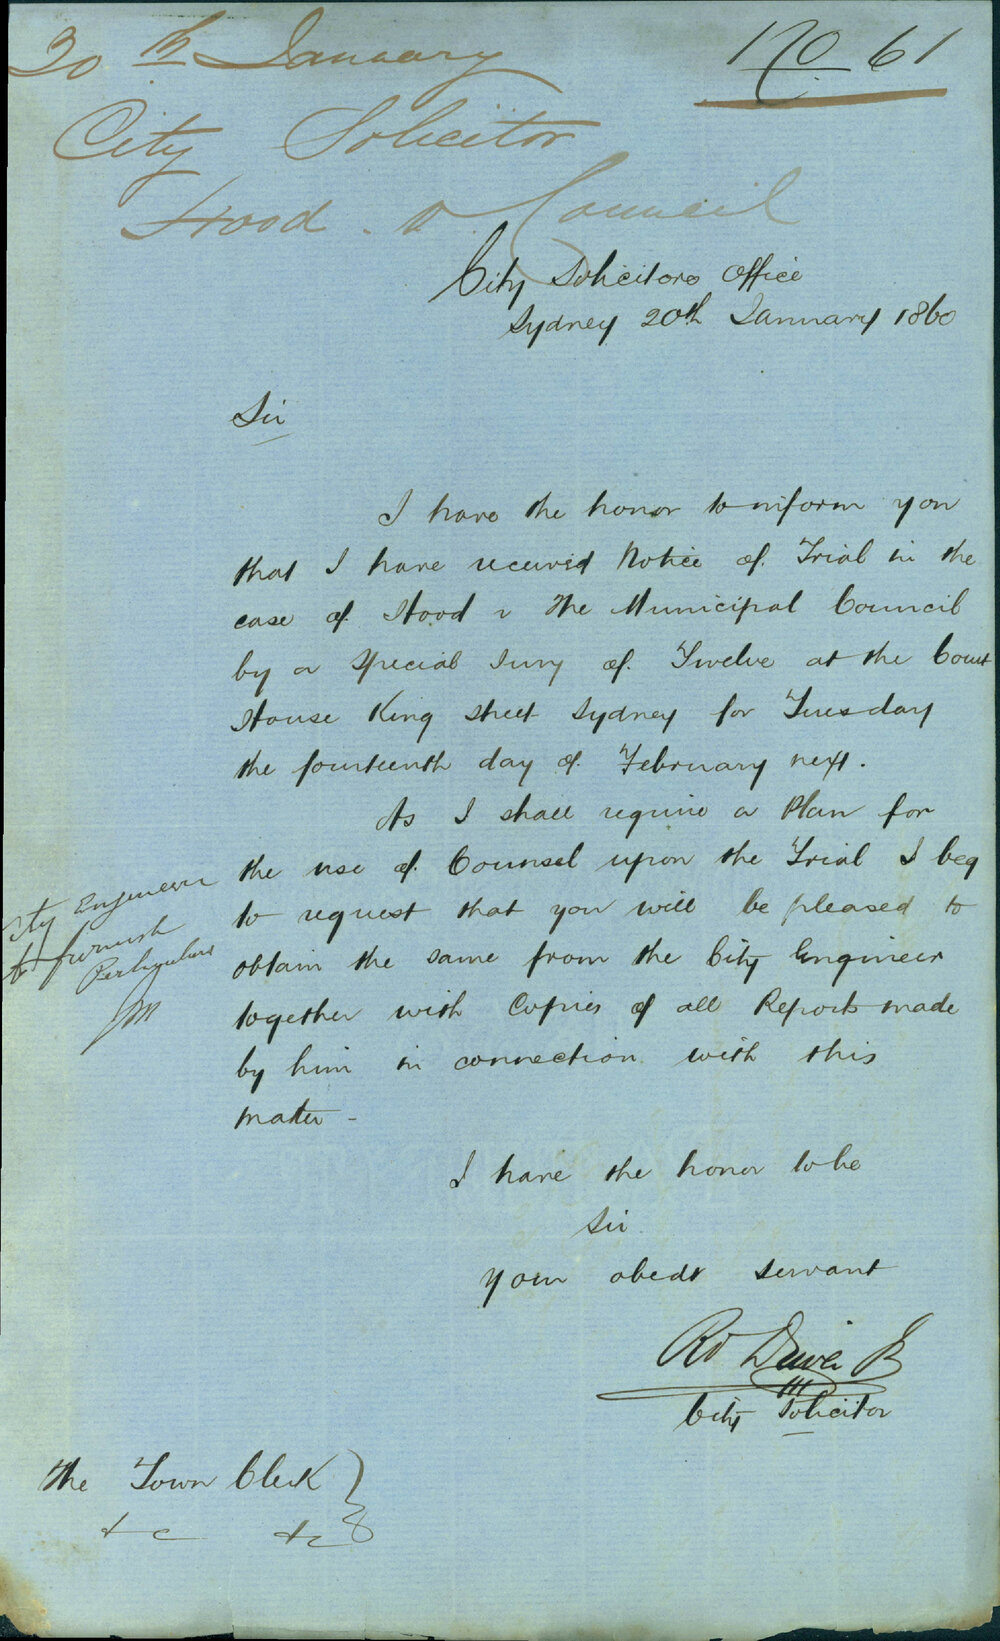 30th January
No 61
City Solicitor
Hood v Council
City Solicitors Office
Sydney 20th January 1860
Sir
I have the honor to inform you
that I have received Notice of Trial in the
case of Hood v The Municipal Council
by a Special Jury of Twelve at the Court
House King Street Sydney for Tuesday
the fourteenth day of February next.
As I shall require a Plan for
the use of Counsel upon the Trial I beg
to request that you will be pleased to
obtain the same from the City Engineer
together with Copies of all Reports made
by him in connection with this
matter -
City Engineer
to furnish
Particulars
I have the honor to be
Sir
Your obedt servant
Rd Driver Jr
City Solicitor
The Town Clerk
&c &c